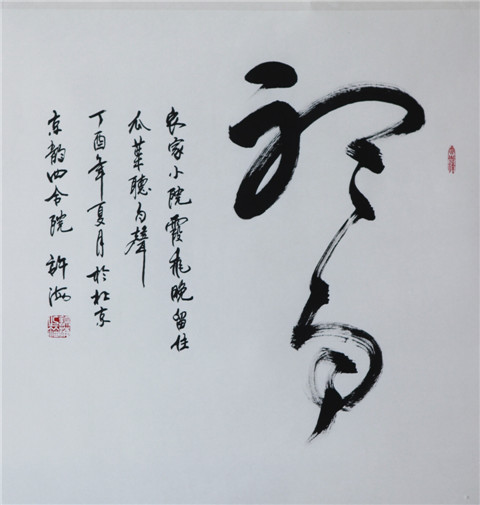 聽雨
农家小院霞飛晚留住
瓜葉聽雨聲
丁酉年夏月於北京
京韵四合院 許海